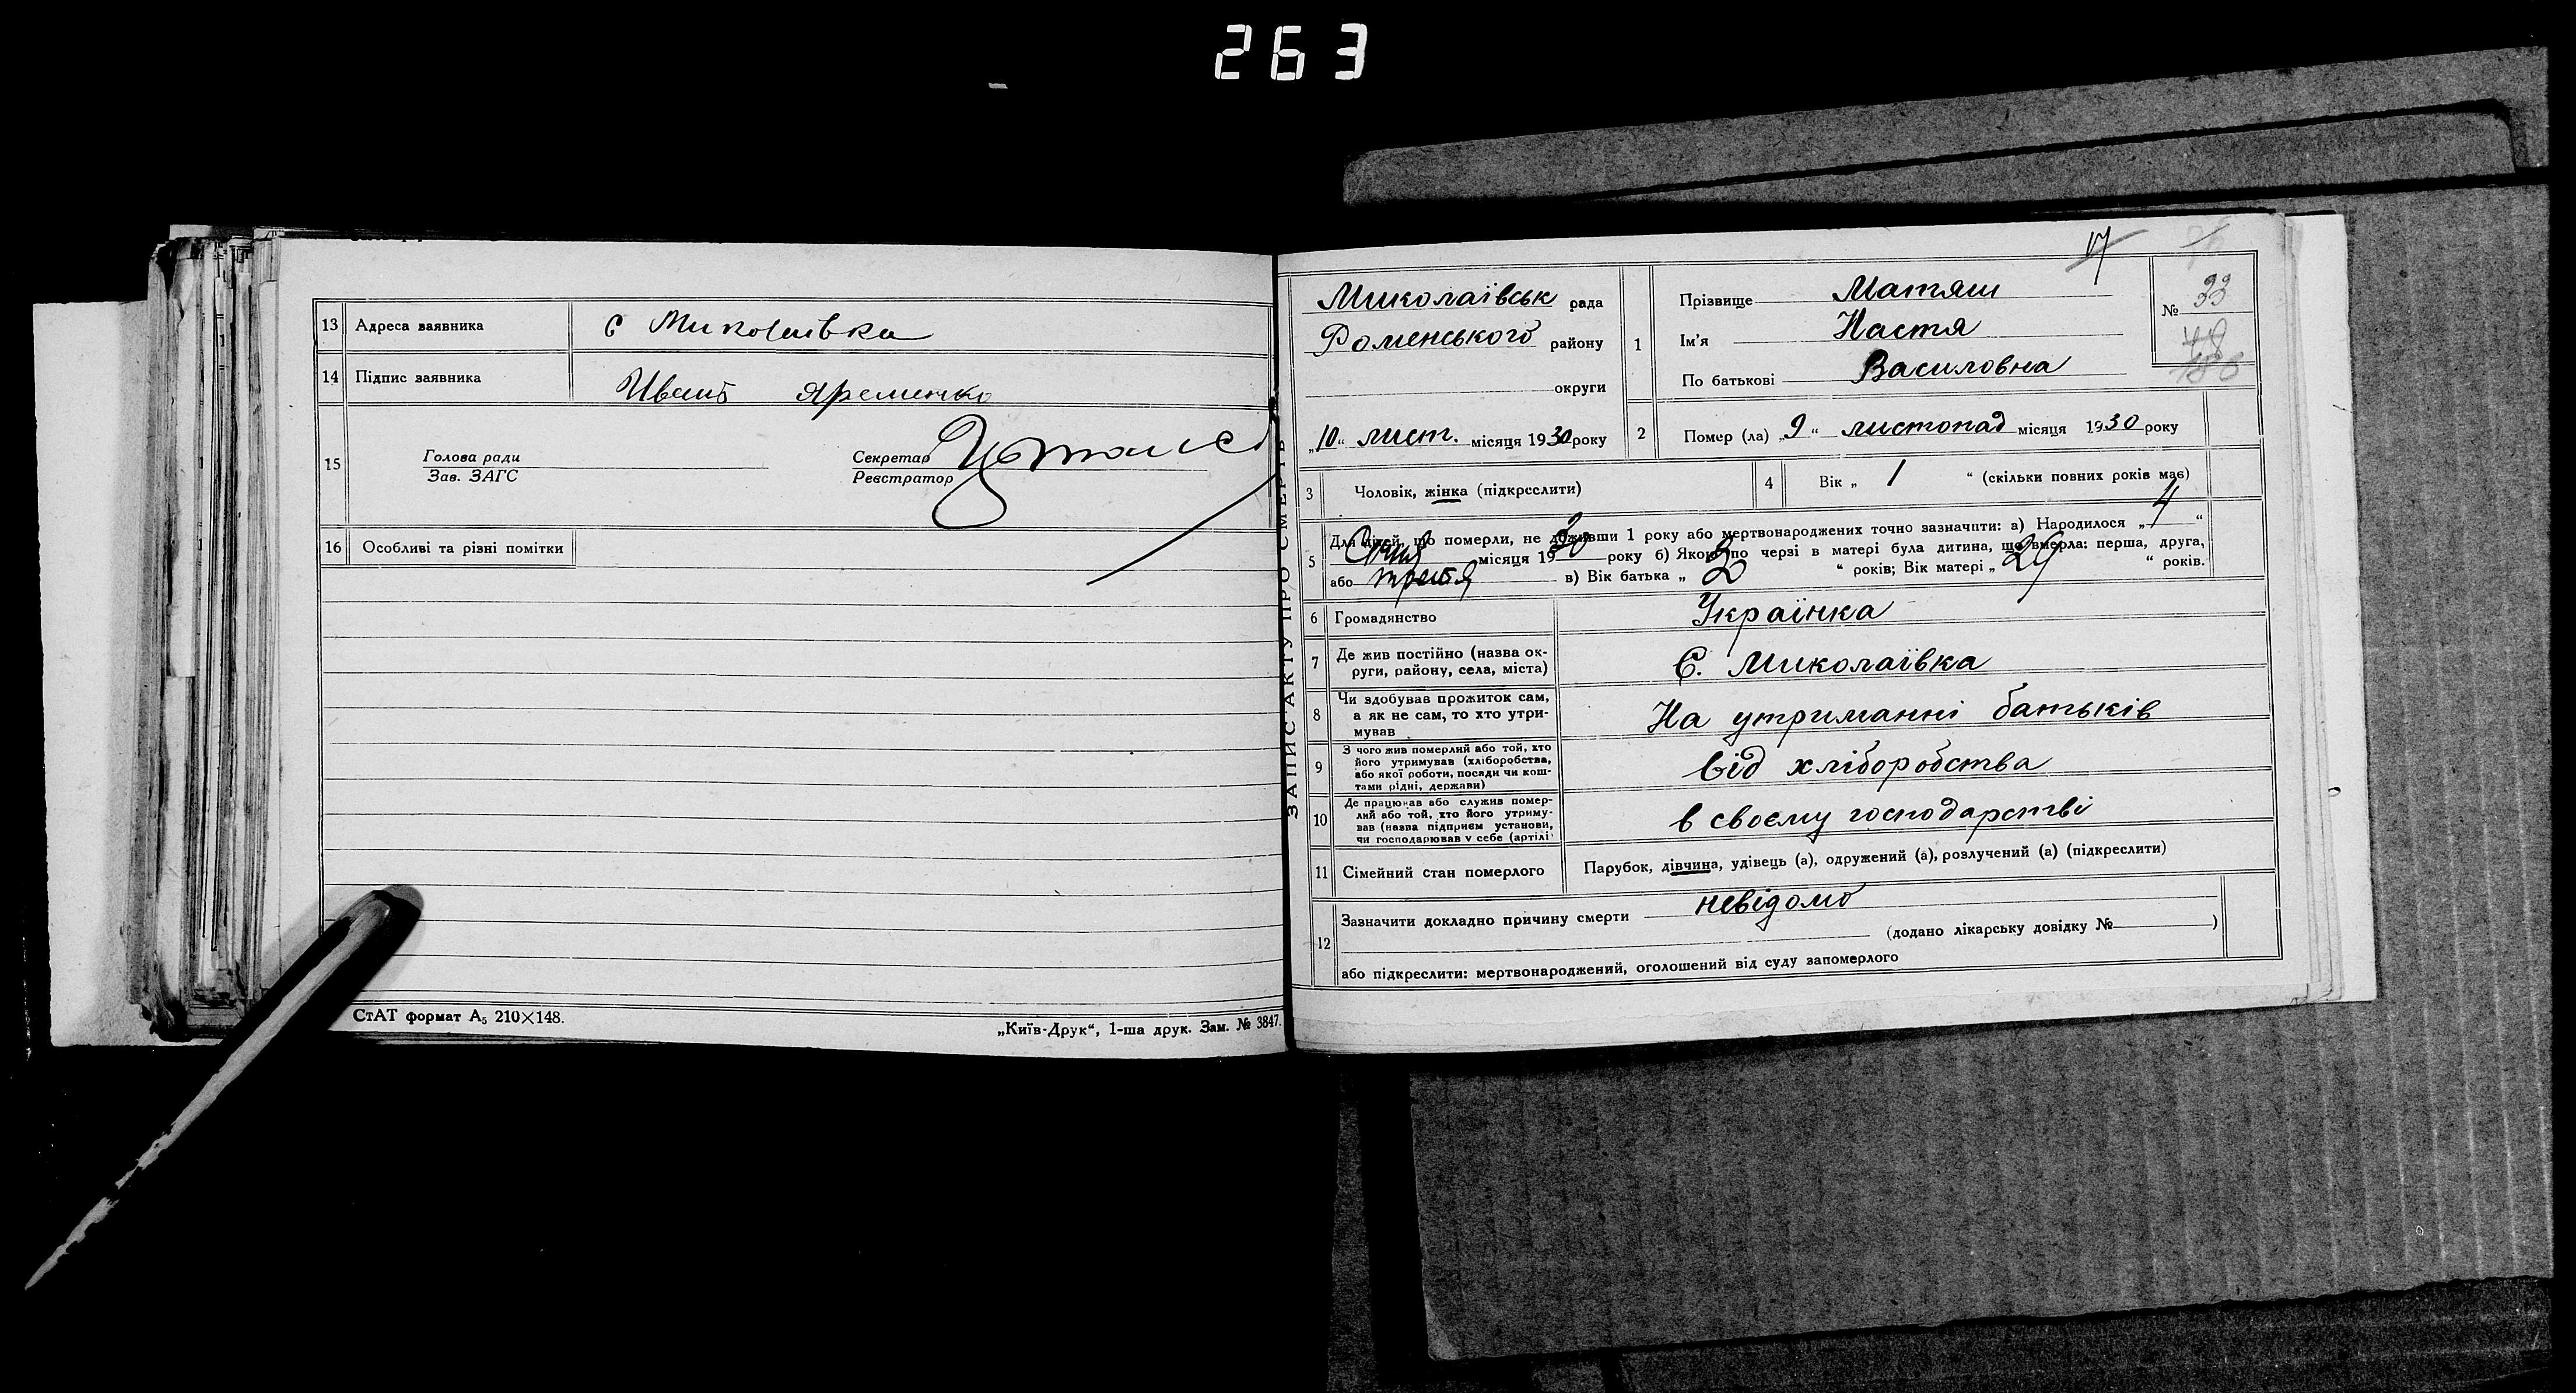 263
13 Адреса заявника с Миколаівка
14 Підпис заявника Иванъ Яременко
15 Голова ради
Зав. ЗАГС
Секретар
Реєстратор
16 Особливі та різні помітки
СтАТ формат А₅ 210×148.
„Київ-Друк“, 1-ша друк. Зам. № 3847.
ЗАПИС АКТУ ПРО СМЕРТЬ
17
Миколаївськ рада
Роменського району
округи
„10“ лист. місяця 1930 року
1 Прізвище Матяш
Ім’я Настя
По батькові Василовна
№ 33
48
186
2 Помер (ла) „9“ листопад місяця 1930 року
3 Чоловік, жінка (підкреслити)
4 Вік „ 1 “ (скільки повних років має)
5 Для дітей, що померли, не доживши 1 року або мертвонароджених точно зазначити: а) Народилося „ 4 “
Січня місяця 1930 року б) Якою по черзі в матері була дитина, що вмерла: перша, друга,
або третя в) Вік батька „ “ років; Вік матері „ 29 “ років.
6 Громадянство Українка
7 Де жив постійно (назва ок-
руги, району, села, міста) С. Миколаївка
8 Чи здобував прожиток сам,
а як не сам, то хто утри-
мував На утриманні батьків
9 З чого жив померлий або той, хто
його утримував (хліборобства,
або якої роботи, посади чи кош-
тами рідні, держави) від хліборобства
10 Де працював або служив помер-
лий або той, хто його утриму-
вав (назва підприєм установи,
чи господарював у себе (артілі в своєму господарстві
11 Сімейний стан померлого Парубок, дівчина, удівець (а), одружений (а), розлучений (а) (підкреслити)
12 Зазначити докладно причину смерти невідомо
(додано лікарську довідку № )
або підкреслити: мертвонароджений, оголошений від суду запомерлого